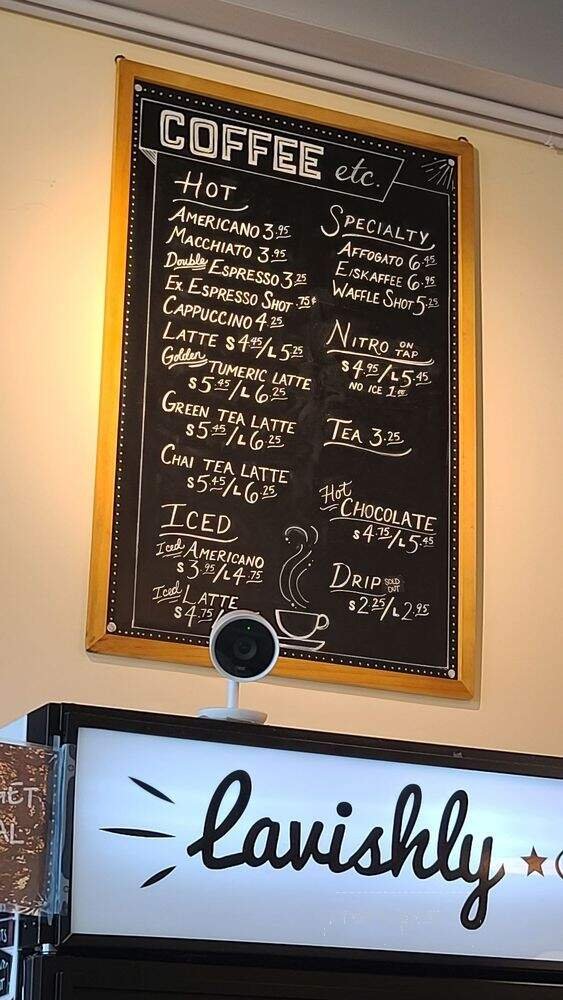 COFFEE etc.
HOT
AMERICANO 3.95
MACCHIATO 3.95
Double ESPRESSO 3.25
EX. ESPRESSO SHOT .75¢
CAPPUCCINO 4.25
LATTE S 4.45/L 5.25
Golden TUMERIC LATTE
S 5.45/L 6.25
GREEN TEA LATTE
S 5.45/L 6.25
CHAI TEA LATTE
S 5.45/L 6.25
ICED
Iced AMERICANO
S 3.95/L 4.75
Iced LATTE
S 4.75
SPECIALTY
AFFOGATO 6.45
EISKAFFEE 6.95
WAFFLE SHOT 5.25
NITRO ON TAP
S 4.95/L 5.45
NO ICE 1.00
TEA 3.25
Hot CHOCOLATE
S 4.75/L 5.45
DRIP SOLD OUT
S 2.25/L 2.95
lavishly